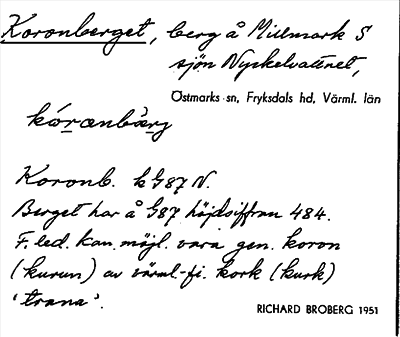 Koronberget, berg å Millmark S
sjön Nyckelvattnet,
Östmarks sn, Fryksdals hd, Värml. län
kóronbærg
Koronb. k G87 N.
Berget har å G87 höjdsiffran 484.
F. led. kan möjl. vara gen. koron
(kurun) av värml.-fi. kork (kurk)
'trana'.
RICHARD BROBERG 1951